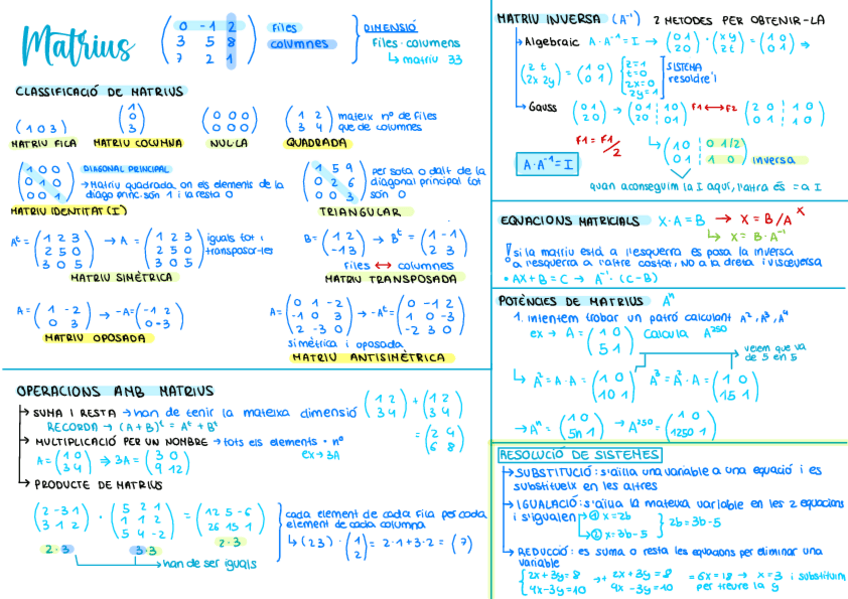 Matrius
0 -1 2
3 5 8
7 2 1
files
columnes
DIMENSIÓ
files · columens
↳ matriu 33
CLASSIFICACIÓ DE MATRIUS
(1 0 3)
MATRIU FILA
1
0
3
MATRIU COLUMNA
0 0 0
0 0 0
NUL·LA
1 2
3 4
mateix nº de files
que de columnes
QUADRADA
1 0 0
0 1 0
0 0 1
DIAGONAL PRINCIPAL
→ Matriu quadrada on els elements de la
diago princ. són 1 i la resta 0
MATRIU IDENTITAT (I)
1 5 9
0 2 6
0 0 3
per sota o dalt de la
diagonal principal tot
són 0
TRIANGULAR
Aᵗ = (1 2 3 / 2 5 0 / 3 0 5) → A = (1 2 3 / 2 5 0 / 3 0 5) iguals tot i
transposar-les
MATRIU SIMÈTRICA
B = (1 2 / -1 3) → Bᵗ = (1 -1 / 2 3)
files ↔ columnes
MATRIU TRANSPOSADA
A = (1 -2 / 0 3) → -A = (-1 2 / 0 -3)
MATRIU OPOSADA
A = (0 1 -2 / -1 0 3 / 2 -3 0) → -Aᵗ = (0 -1 2 / 1 0 -3 / -2 3 0)
simètrica i oposada
MATRIU ANTISIMÈTRICA
OPERACIONS AMB MATRIUS
→ SUMA I RESTA → han de tenir la mateixa dimensió (1 2 / 3 4) + (1 2 / 3 4)
RECORDA → (A+B)ᵗ = Aᵗ + Bᵗ
= (2 4 / 6 8)
→ MULTIPLICACIÓ PER UN NOMBRE → tots els elements · nº
ex → 3A
A = (1 0 / 3 4) ⇒ 3A = (3 0 / 9 12)
→ PRODUCTE DE MATRIUS
(2 -3 1 / 3 1 2) · (5 2 1 / 1 1 2 / 5 4 -2) = (12 5 -6 / 26 15 1)
2·3
3·3
2·3
han de ser iguals
cada element de cada fila per cada
element de cada columna
↳ (2 3) · (1 / 2) = 2·1 + 3·2 = (7)
MATRIU INVERSA (A⁻¹) 2 METODES PER OBTENIR-LA
→ Algebraic A · A⁻¹ = I → (0 1 / 2 0) · (x y / z t) = (1 0 / 0 1) ⇒
(z t / 2x 2y) = (1 0 / 0 1)
z = 1
t = 0
2x = 0
2y = 1
SISTEMA
resoldre'l
→ Gauss (0 1 / 2 0) → (0 1 | 1 0 / 2 0 | 0 1) F1 ↔ F2 (2 0 | 1 0 / 0 1 | 1 0)
F1 = F1/2
↳ (1 0 | 0 1/2 / 0 1 | 1 0) inversa
A·A⁻¹ = I
quan aconseguim la I aquí, l'altra és = a I
EQUACIONS MATRICIALS X·A = B → X = B/A X
↳ X = B·A⁻¹
! si la matriu està a l'esquerra es posa la inversa
a l'esquerra a l'altre costat, NO a la dreta i viceversa
• AX + B = C → A⁻¹ · (C - B)
POTÈNCIES DE MATRIUS Aⁿ
1. Intentem trobar un patró calculant A², A³, A⁴
ex → A = (1 0 / 5 1) Calcula A²⁵⁰
veiem que va
de 5 en 5
↳ A² = A·A = (1 0 / 10 1) A³ = A²·A = (1 0 / 15 1)
→ Aⁿ = (1 0 / 5n 1) → A²⁵⁰ = (1 0 / 1250 1)
RESOLUCIÓ DE SISTEMES
→ SUBSTITUCIÓ: s'aïlla una variable a una equació i es
substitueix en les altres
→ IGUALACIÓ: s'aïlla la mateixa variable en les 2 equacions
i s'igualen → ① x = 2b
→ ② x = 3b - 5
2b = 3b - 5
→ REDUCCIÓ: es suma o resta les equacions per eliminar una
variable
2x + 3y = 8
4x - 3y = 10
→ + 2x + 3y = 8
4x - 3y = 10
= 6x = 18 → x = 3 i substituïm
per treure la y